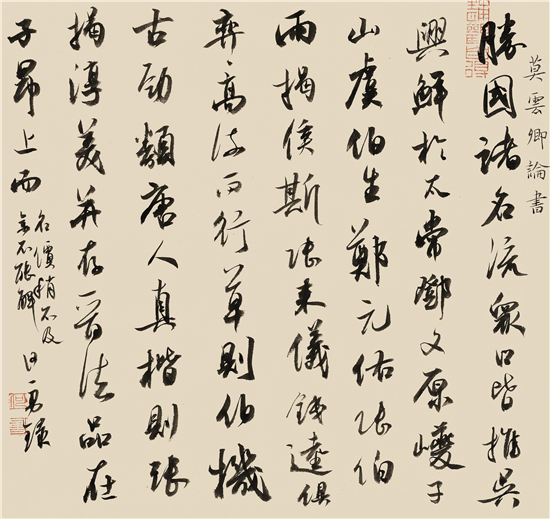 莫雲卿論書
勝國諸名流眾口皆推吳
興鮮於太常鄧文原巙子
山虞伯生鄭元佑張伯
雨揭侯斯張來儀錢逵俱
弈弈高流而行草則伯機
古勁類唐人真楷則張
揭淳美并存晉法品在
子昂上而
名價稍不及
余不能解